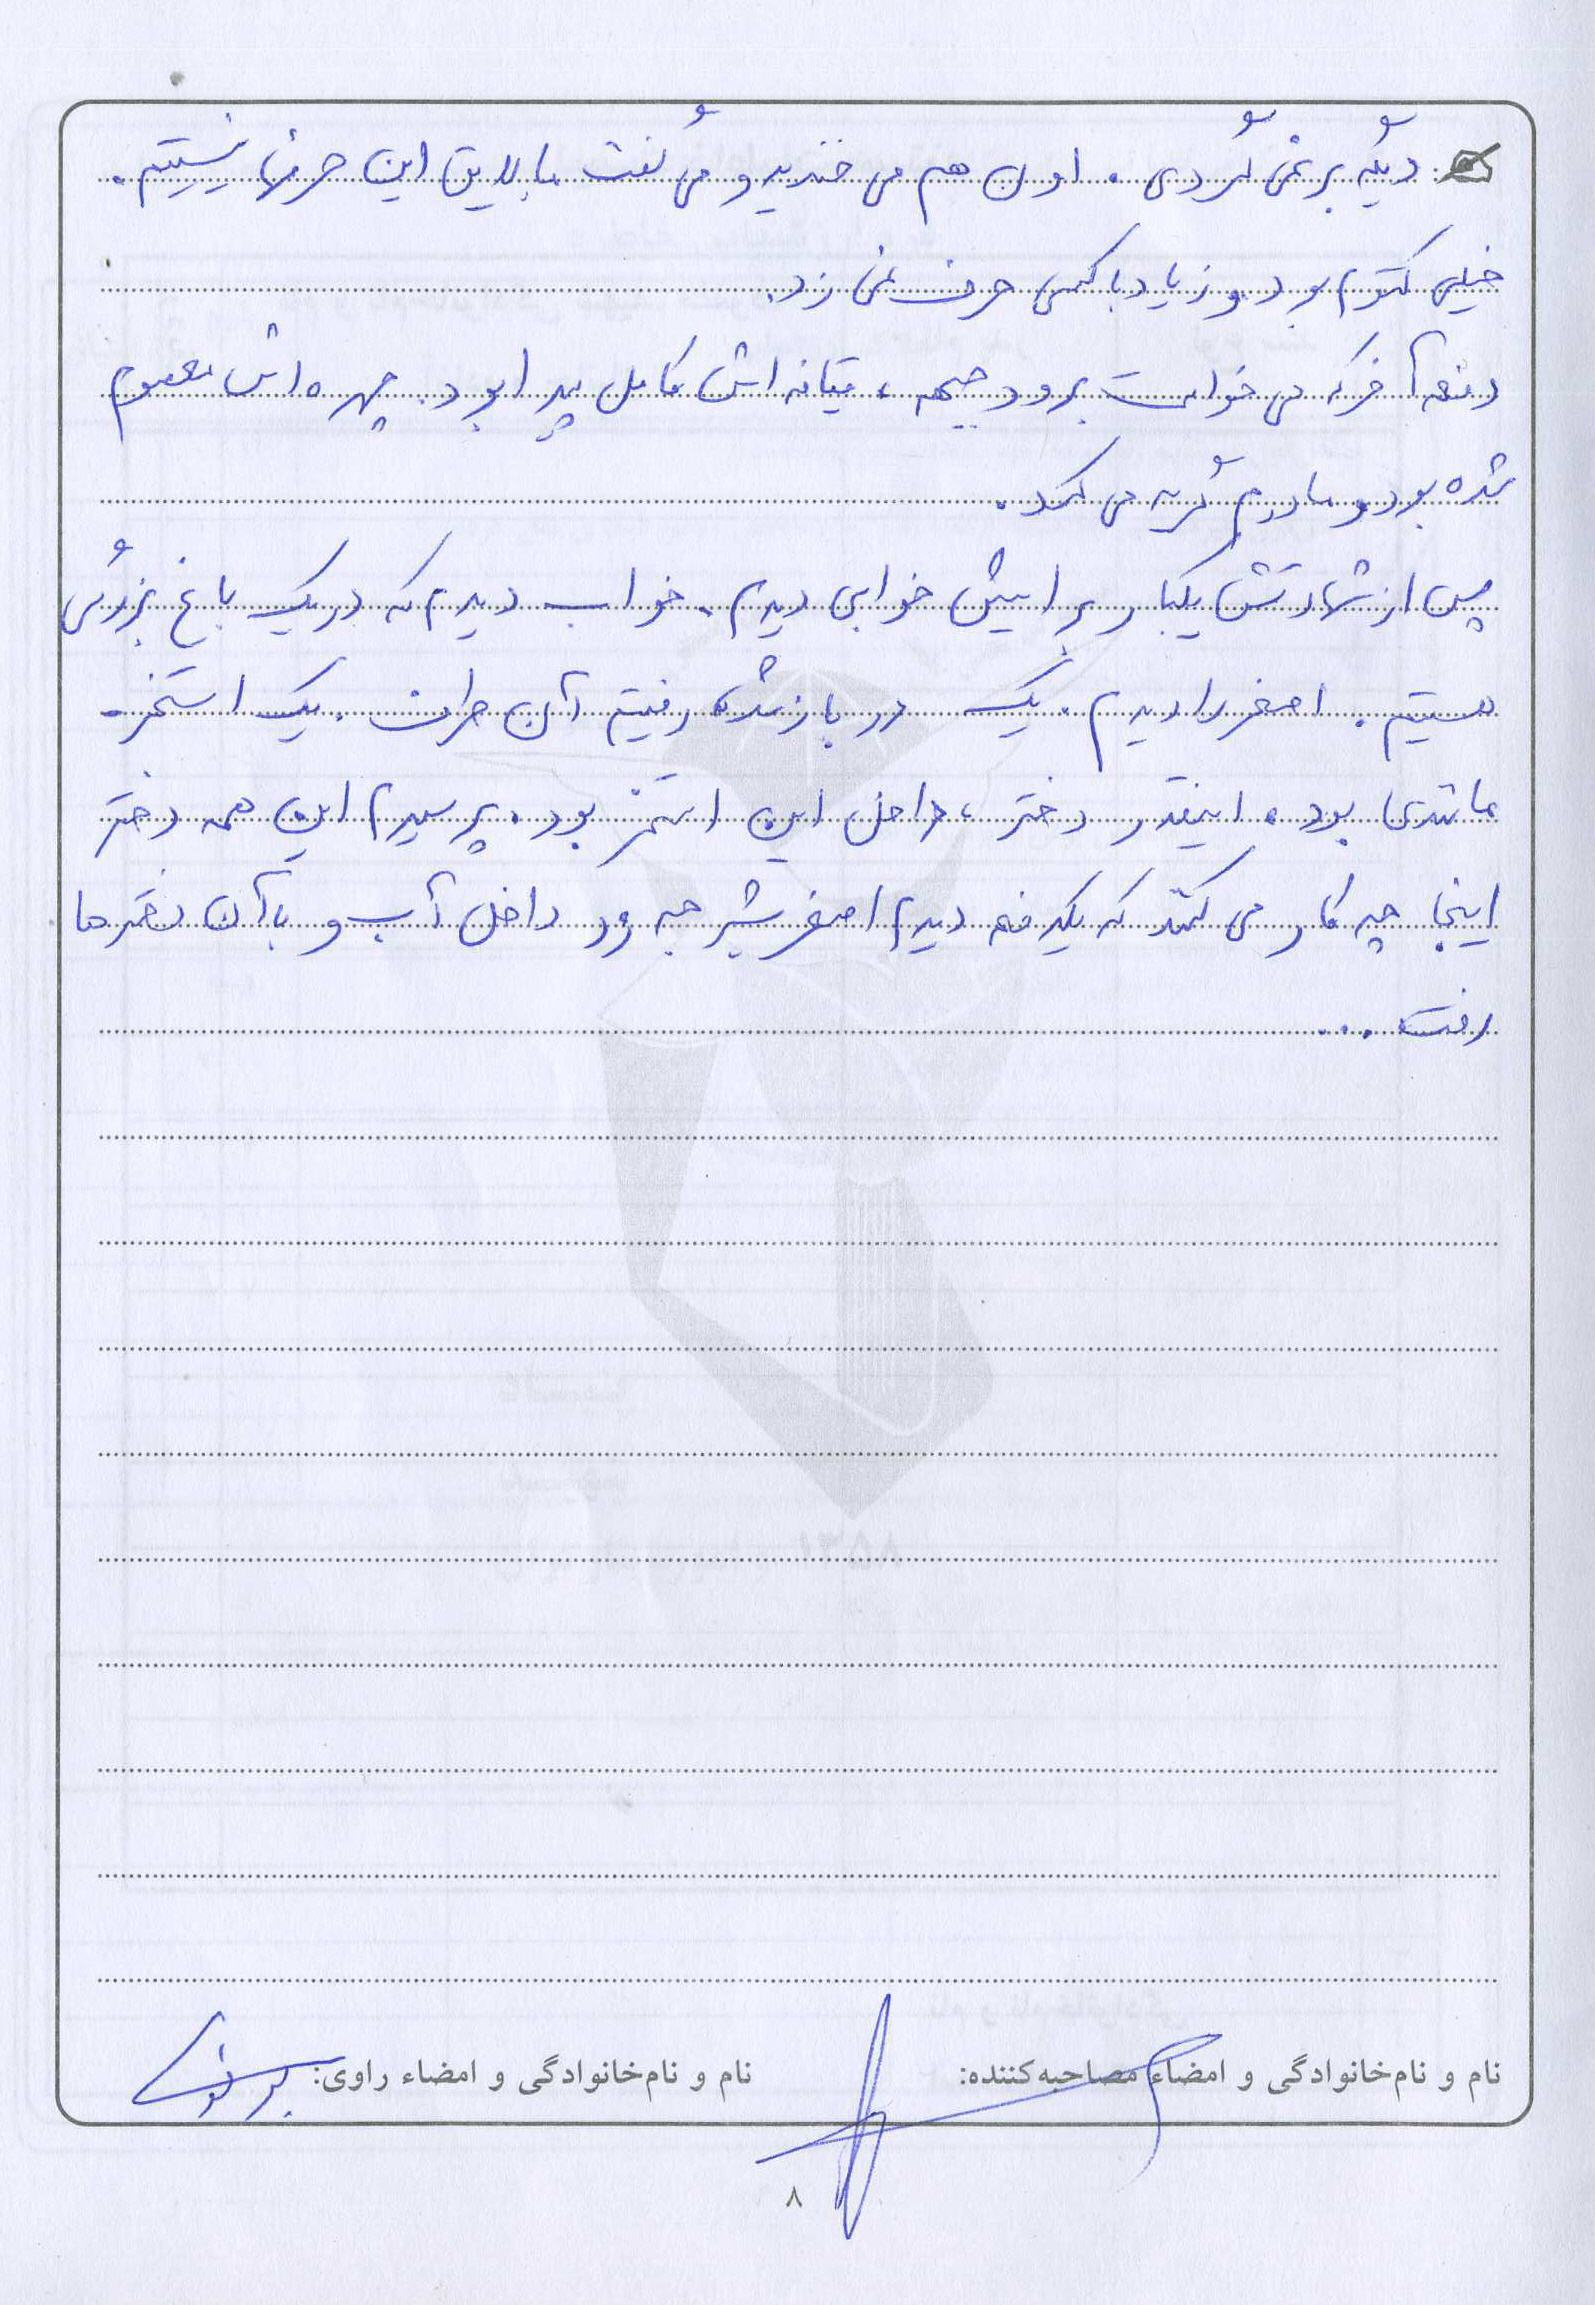 دیگه برنمی گردی. اون هم می خندید و می گفت ما لایق این حرفها نیستیم.
خیلی کتوم بود و زیاد با کسی حرف نمی زد.
دفعه آخر که می خواست برود جبهه، قیافه اش کاملا پیدا بود. چهره اش معصوم
شده بود و مادرم گریه می کرد.
پس از شهادتش یکبار برایش خوابی دیدم. خواب دیدم که در یک باغ بزرگی
هستیم. اصغر را دیدم. یک در باز شد رفتیم آن طرف. یک استخر
مانندی بود. اینقدر دختر، داخل این استخر بود. پرسیدم این همه دختر
اینجا چه کار می کنند که یکدفعه دیدم اصغر شیرجه زد داخل آب و با آن دخترها
رفت...
نام و نام‌خانوادگی و امضاء مصاحبه‌کننده: نام و نام‌خانوادگی و امضاء راوی:
۸